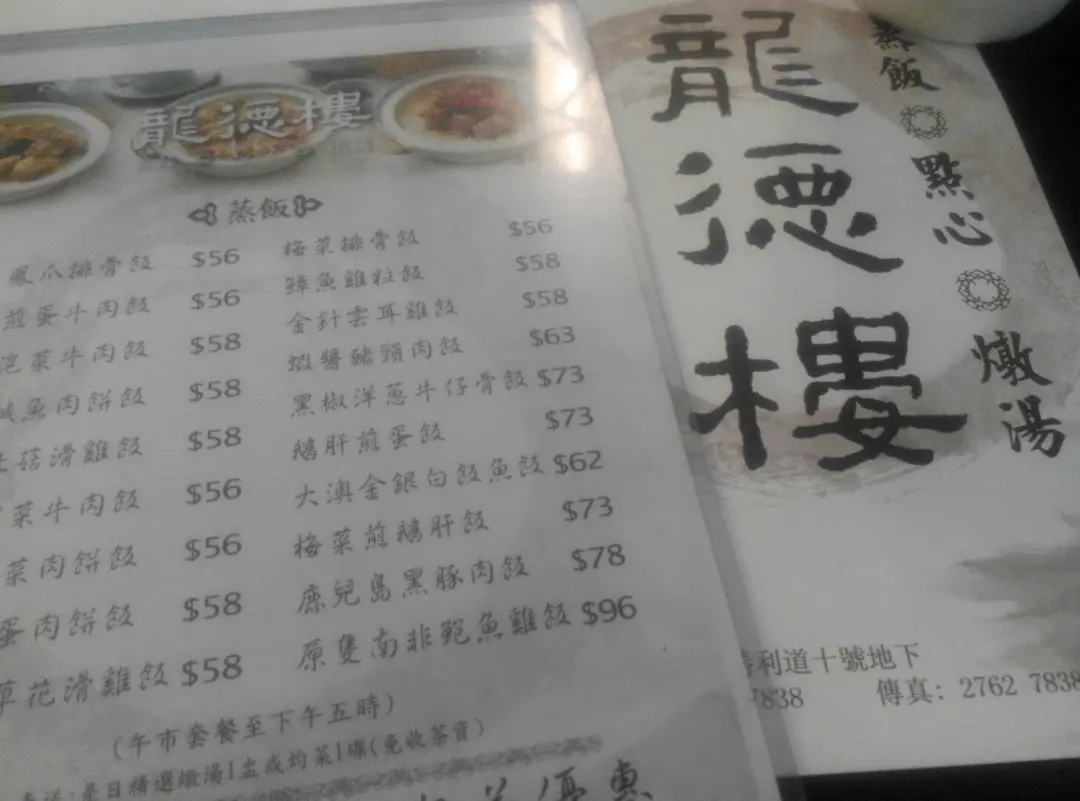 龍德樓
蒸飯
鳳爪排骨飯 $56
煎蛋牛肉飯 $56
泡菜牛肉飯 $58
鹹魚肉餅飯 $58
菇滑雞飯 $58
菜牛肉飯 $56
菜肉餅飯 $56
蛋肉餅飯 $58
草花滑雞飯 $58
梅菜排骨飯 $56
鱆魚雞粒飯 $58
金針雲耳雞飯 $58
蝦醬豬頸肉飯 $63
黑椒洋蔥牛仔骨飯 $73
鵝肝煎蛋飯 $73
大澳金銀白飯魚飯 $62
梅菜煎鵝肝飯 $73
鹿兒島黑豚肉飯 $78
原隻南非鮑魚雞飯 $96
(午市套餐至下午五時)
送:是日精選燉湯1盅或灼菜1碟(免收茶資)
優惠
龍德樓
蒸飯
點心
燉湯
勝利道十號地下
7838 傳真: 2762 7838